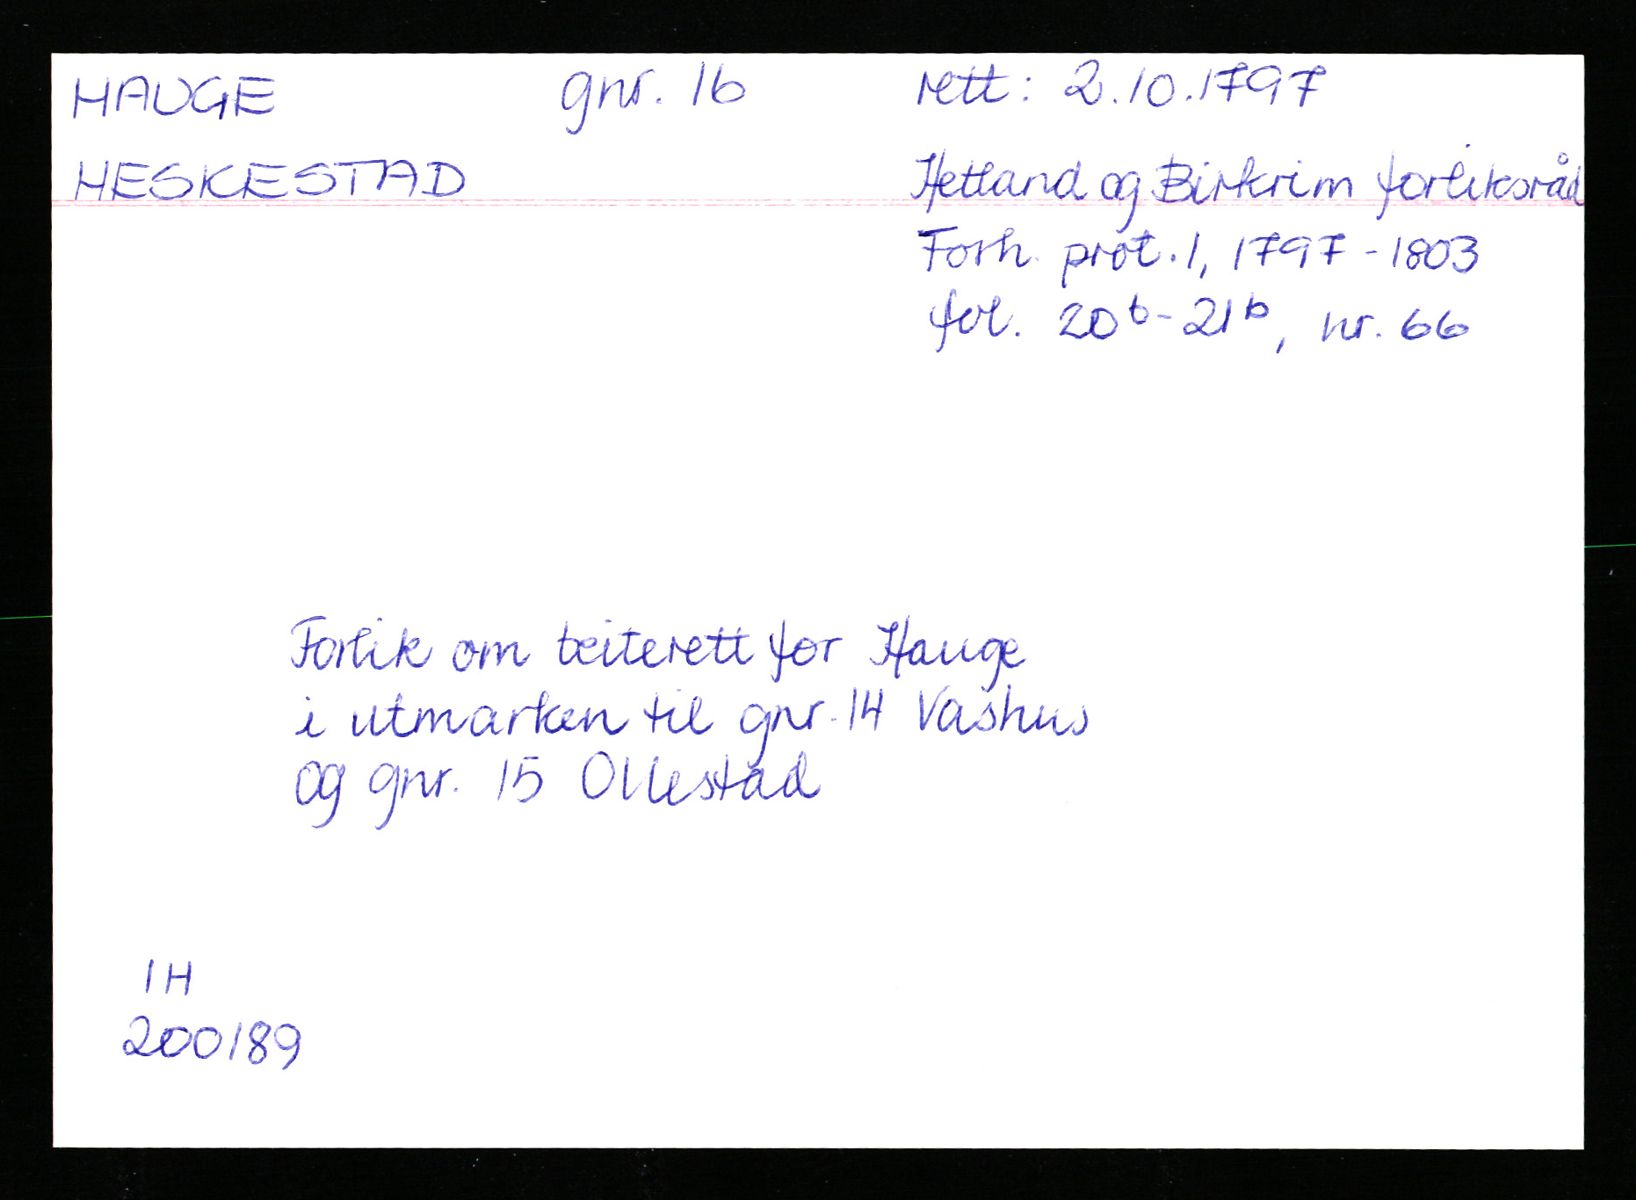 HAUGE gnr. 16 rett: 2.10.1797
HESKESTAD Hetland og Birkrim forliksråd
Forh. prot. 1, 1797-1803
fol. 20b-21b, nr. 66
Forlik om beiterett for Hauge
i utmarken til gnr. 14 Vashus
og gnr. 15 Ollestad
IH
200/89